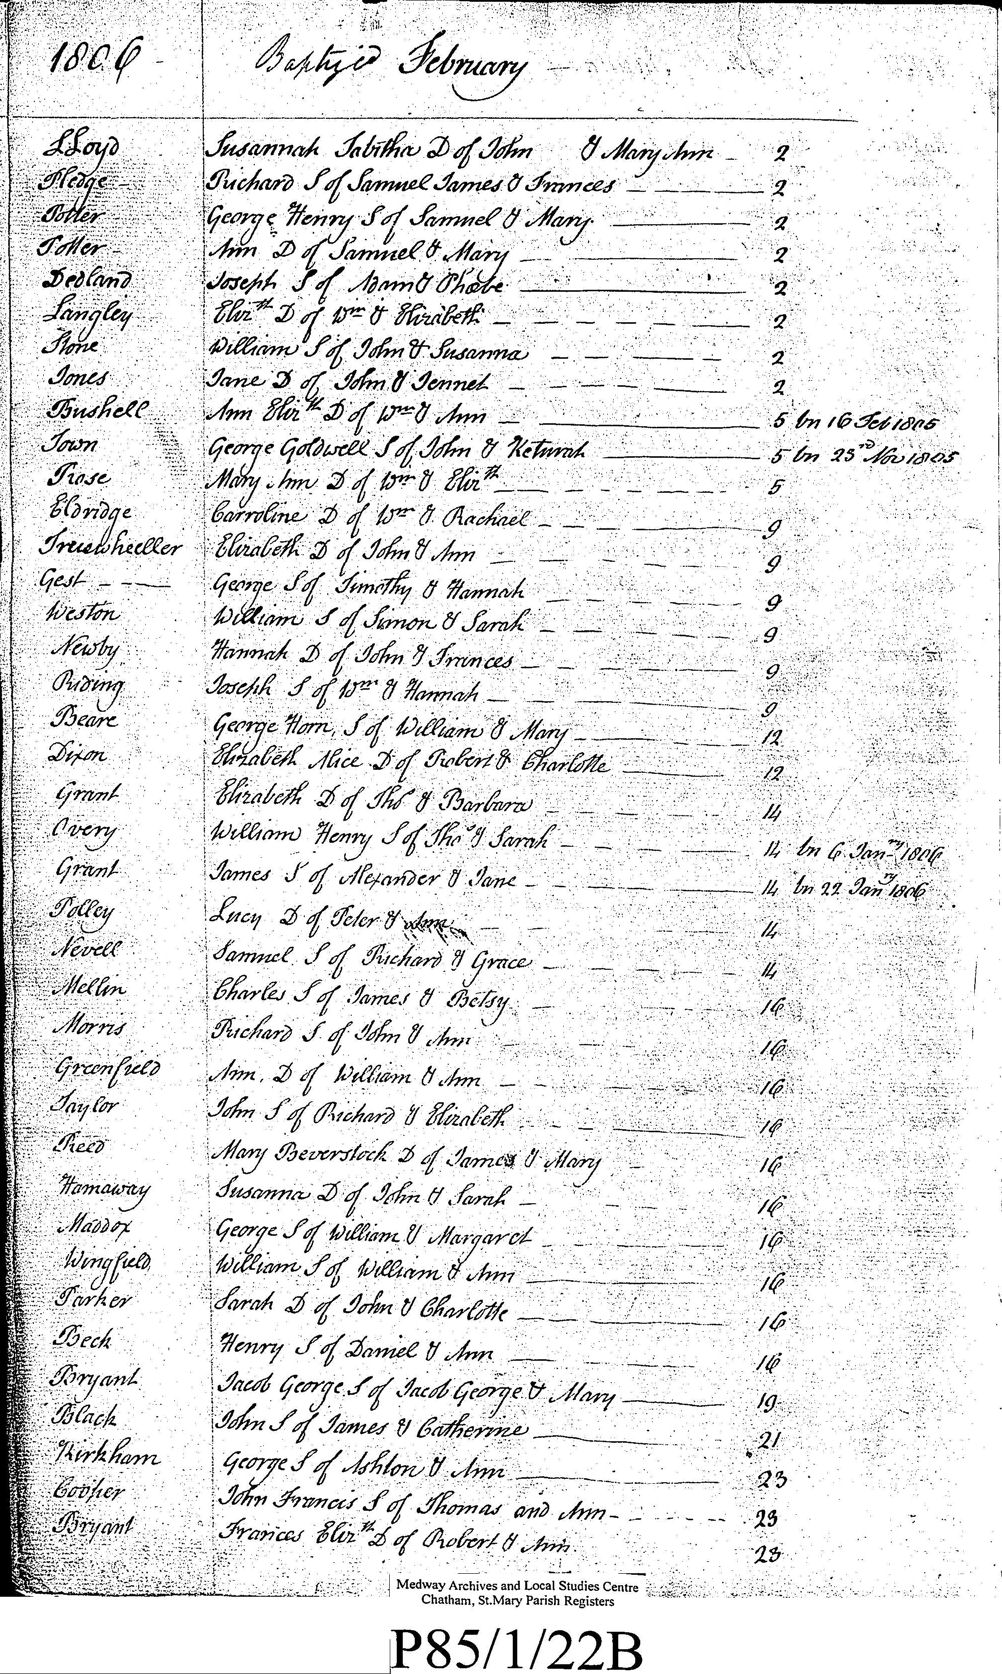 1806 Baptiz'd February
LLoyd Susannah Tabitha D of John & Mary Ann 2
Pledge Richard S of Samuel James & Frances 2
Potter George Henry S of Samuel & Mary 2
Potter Ann D of Samuel & Mary 2
Dedland Joseph S of Adam & Phoebe 2
Langley Eliz.th D of Wm & Elizabeth 2
Stone William S of John & Susanna 2
Jones Jane D of John & Jennet 2
Bushell Ann Eliz.th D of Wm & Ann 5 bn 16 Feb 1805
Town George Goldwell S of John & Keturah 5 bn 23rd Nov 1805
Prose Mary Ann D of Wm & Eliz.th 5
Eldridge Carroline D of Wm & Rachael 9
Treewheeller Elizabeth D of John & Ann 9
Gest George S of Timothy & Hannah 9
Weston William S of Simon & Sarah 9
Newby Hannah D of John & Frances 9
Riding Joseph S of Wm & Hannah 9
Beare George Horn, S of William & Mary 12
Dixon Elizabeth Alice D of Robert & Charlotte 12
Grant Elizabeth D of Thos & Barbara 14
Overy William Henry S of Thos & Sarah 14 bn 6 Janry 1806
Grant James S of Alexander & Jane 14 bn 22 Janry 1806
Polley Lucy D of Peter & Ann 14
Nevell Samuel S of Richard & Grace 14
Mellin Charles S of James & Betsy 16
Morris Richard S of John & Ann 16
Greenfield Ann D of William & Ann 16
Taylor John S of Richard & Elizabeth 16
Reed Mary Beverstock D of James & Mary 16
Hamaway Susanna D of John & Sarah 16
Maddox George S of William & Margaret 16
Wingfield William S of William & Ann 16
Parker Sarah D of John & Charlotte 16
Beck Henry S of Daniel & Ann 16
Bryant Jacob George S of Jacob George & Mary 19
Black John S of James & Catherine 21
Kirkham George S of Ashton & Ann 23
Cooper John Francis S of Thomas and Ann 23
Bryant Frances Eliz.th D of Robert & Ann 23
Medway Archives and Local Studies Centre
Chatham, St.Mary Parish Registers
P85/1/22B